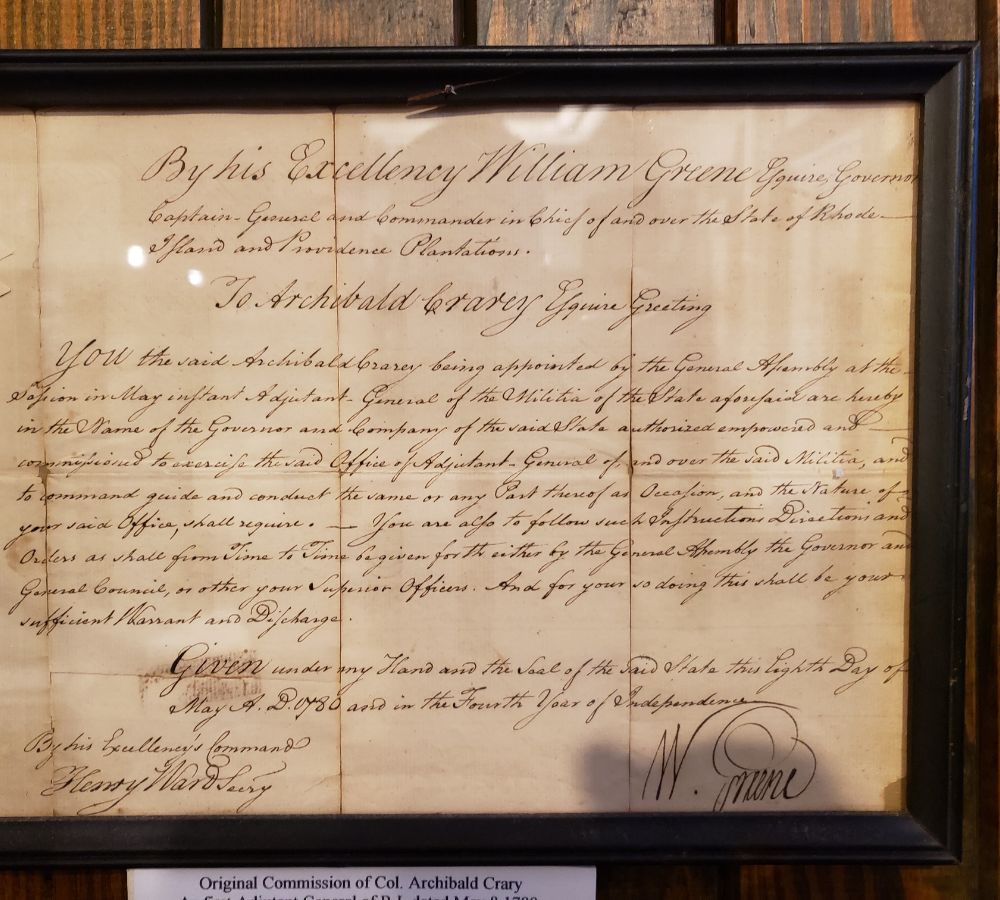 By his Excellency William Greene Esquire, Governor
Captain-General and Commander in Chief of and over the State of Rhode-
Island and Providence Plantations.
To Archibald Crarey Esquire Greeting
You the said Archibald Crarey being appointed by the General Assembly at the
Session in May instant Adjutant-General of the Militia of the State aforesaid are hereby
in the Name of the Governor and Company of the said State authorized empowered and
commissioned to exercise the said Office of Adjutant-General of, and over the said Militia, and
to command guide and conduct the same or any Part thereof as Occasion, and the Nature of
your said Office, shall require. — You are also to follow such Instructions Directions and
Orders as shall from Time to Time be given forth either by the General Assembly the Governor and
General Council, or other your Superior Officers. And for your so doing this shall be your
sufficient Warrant and Discharge.
Given under my Hand and the Seal of the said State this Eighth Day of
May A.D. 1780 and in the Fourth Year of Independence
By his Excellency's Command
Henry Ward Secry
W. Greene
Original Commission of Col. Archibald Crary
As first Adjutant General of R.I. dated May 8 1780